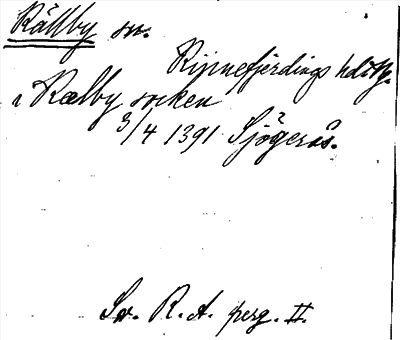 Källby sn.
Kinnefjerdings hd, Vg.
i Kælby socken
3/4 1391 Sjögerås.
Sv. R. A. perg. II.